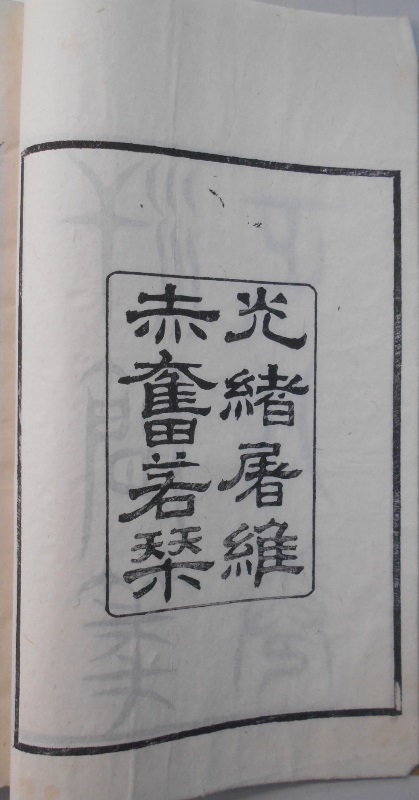 光緒屠維
赤奮若栞